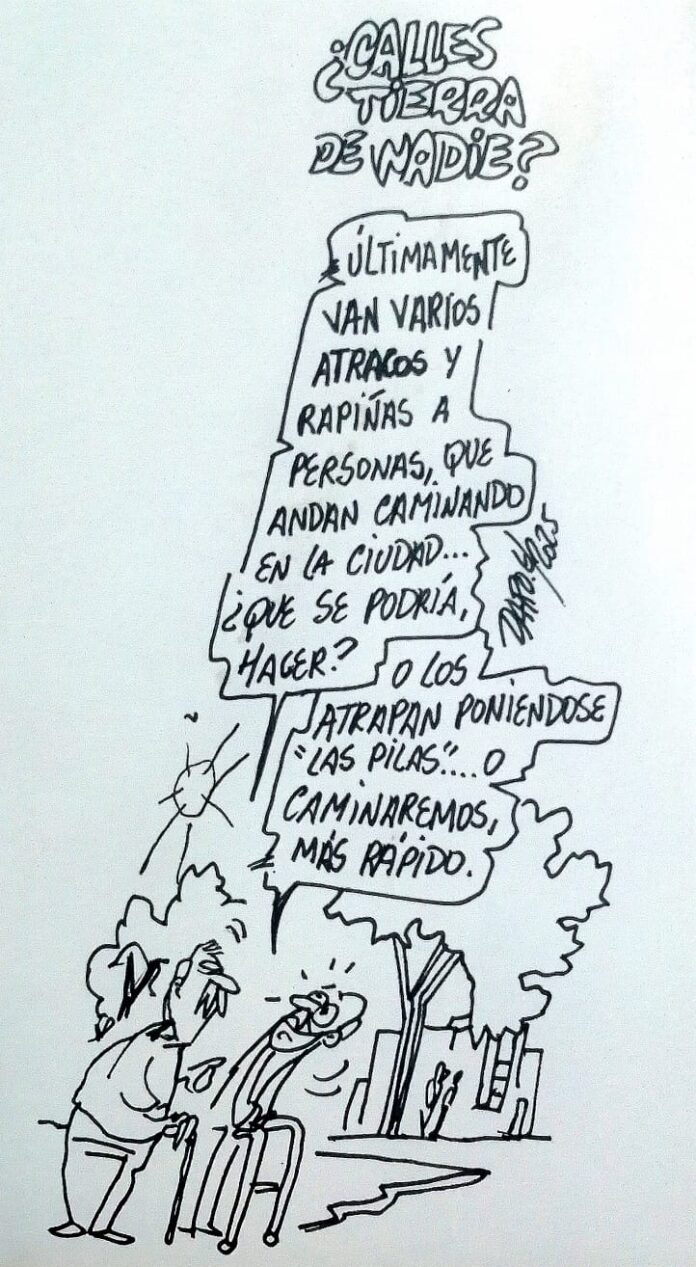 ¿CALLES
TIERRA
DE NADIE?
ÚLTIMAMENTE
VAN VARIOS
ATRACOS Y
RAPIÑAS A
PERSONAS, QUE
ANDAN CAMINANDO
EN LA CIUDAD...
¿QUE SE PODRÍA,
HACER?
O LOS
ATRAPAN PONIENDOSE
"LAS PILAS".... O
CAMINAREMOS,
MÁS RÁPIDO.
2025